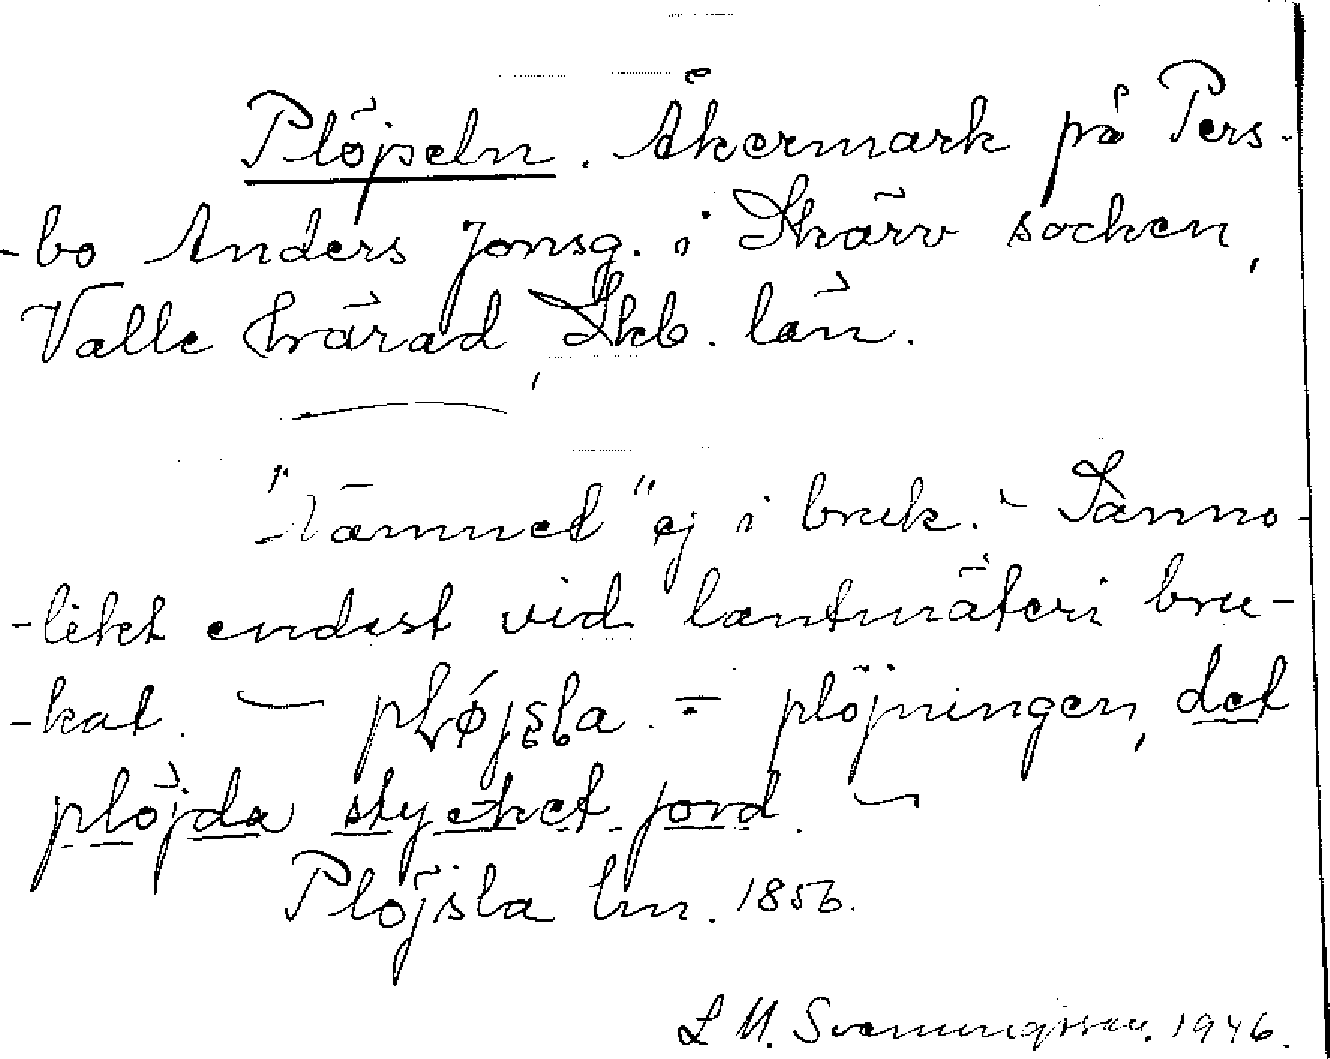 Plöjseln. Åkermark på Pers-
-bo Anders Jonsg. i Skärv socken,
Valle härad, Skb. län.
"Nämned" ej i bruk. - Sanno-
-likt endast vid lantmäteri bru-
-kat. — pLøjsla. = plöjningen, det
plöjda stycket jord. —
Plöjsla lm. 1856.
L M. Svenungsson. 1946.